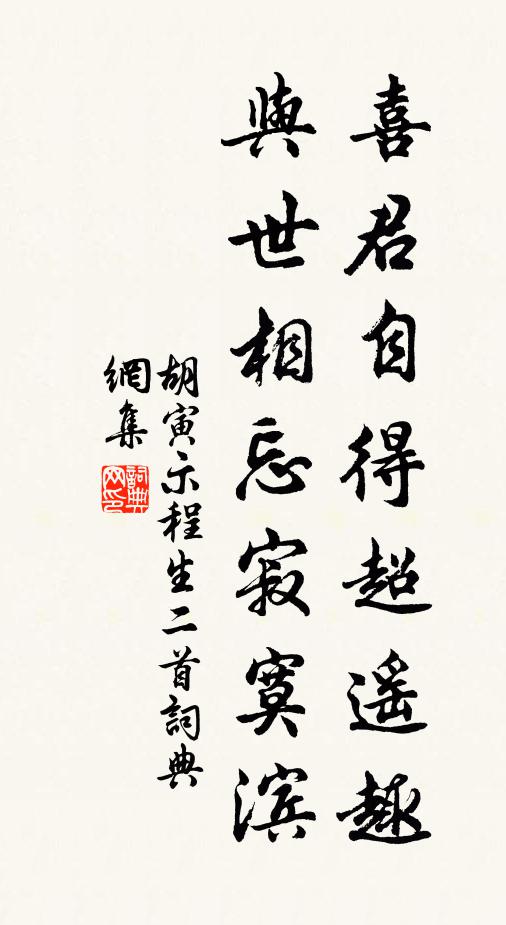 喜君自得超遥趣
與世相忘寂寞滨
胡寅示程生二首詞典
網集
詞典网印